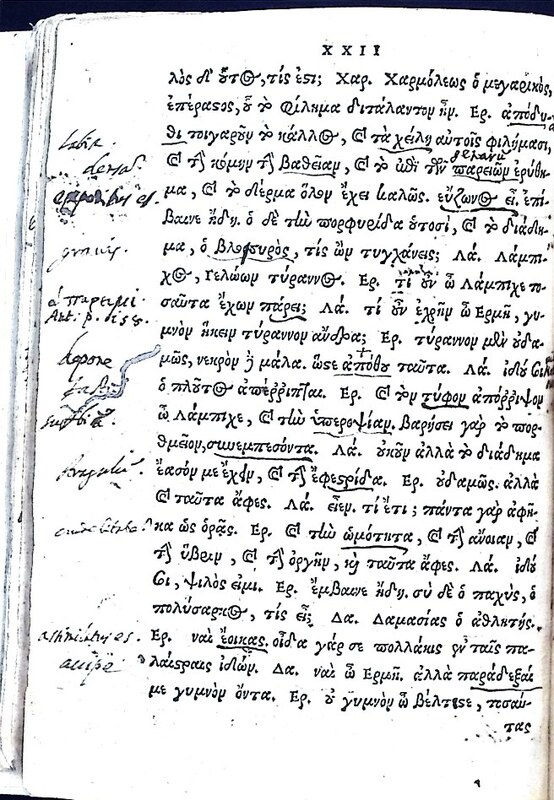 XXII
λὸς δ' οὗτος, τίς ἐστι; Χαρ. Χαρμόλεως ὁ μεγαρικὸς,
ἐπέραστος, οὗ τὸ φίλημα διτάλαντον ἦν. Ερ. ἀπόδυ-
labia
θι τοιγαροῦν τὸ κάλλος, καὶ τὰ χείλη αὐτοῖς φιλήμασι,
densa
καὶ τὴν κόμην τὴν βαθεῖαν, καὶ τὸ ἐπὶ τῶν παρειῶν ἐρύθη-
μα, καὶ τὸ δέρμα ὅλον ἔχει καλῶς. εὔζωνος εἶ, ἐπί-
βαινε ἤδη. ὁ δὲ τὴν πορφυρίδα οὑτοσὶ, καὶ τὸ διάδη-
gravis.
μα, ὁ βλοσυρὸς, τίς ὢν τυγχάνεις; Λά. Λάμπι-
χος, Γελώων τύραννος. Ερ. τί οὖν ὦ Λάμπιχε το-
ἀπάρειμι.
σαῦτα ἔχων πάρει; Λά. τί οὖν ἐχρῆν ὦ Ερμῆ, γυ-
μνὸν ἥκειν τύραννον ἄνδρα; Ερ. τύραννον μὲν οὐδα-
depone
μῶς, νεκρὸν δὲ μάλα. ὥστε ἀπόθου ταῦτα. Λά. ἰδού σοι
fastū
ὁ πλοῦτος ἀπέρριπται. Ερ. καὶ τὸν τύφον ἀπόρριψον
ὦ Λάμπιχε, καὶ τὴν ὑπεροψίαν. βαρήσει γὰρ τὸ πορ-
θμεῖον, συνεμπεσόντα. Λά. οὐκοῦν ἀλλὰ τὸ διάδημα
ἔασόν με ἔχειν, καὶ τὴν ἐφεστρίδα. Ερ. οὐδαμῶς. ἀλλὰ
καὶ ταῦτα ἄφες. Λά. εἶεν. τί ἔτι; πάντα γὰρ ἀφῆ-
crudelitatē
κα ὡς ὁρᾷς. Ερ. καὶ τὴν ὠμότητα, καὶ τὴν ἄνοιαν, καὶ
τὴν ὕβριν, καὶ τὴν ὀργὴν, καὶ ταῦτα ἄφες. Λά. ἰδού
σοι, ψιλός εἰμι. Ερ. ἔμβαινε ἤδη. σὺ δὲ ὁ παχὺς, ὁ
πολύσαρκος, τίς εἶ; Δα. Δαμασίας ὁ ἀθλητής.
Ερ. ναὶ ἔοικας. οἶδα γάρ σε πολλάκις ἐν ταῖς πα-
accipe
λαίστραις ἰδών. Δα. ναὶ ὦ Ερμῆ. ἀλλὰ παράδεξαί
με γυμνὸν ὄντα. Ερ. οὐ γυμνὸν ὦ βέλτιστε, τοσαύ-
τας